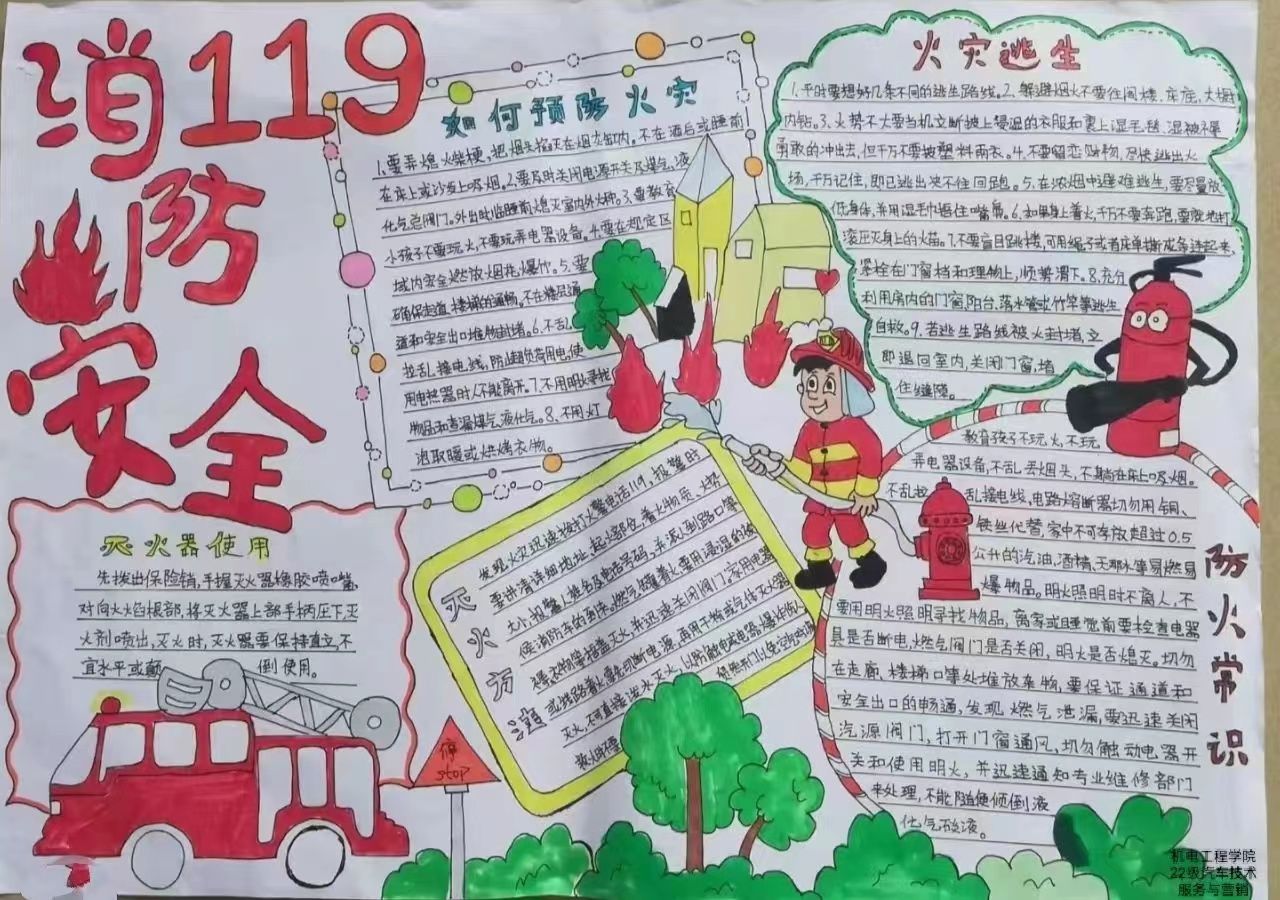 消119
防
安全
如何预防火灾
1.要弄熄火柴梗,把烟头掐灭在烟灰缸内。不在酒后或睡前
在床上或沙发上吸烟。2.要及时关闭电源开关及煤气、液
化气总阀门。外出时临睡前熄灭室内外火种。3.要教育
小孩子不要玩火,不要玩弄电器设备。4.要在规定区
域内安全燃放烟花爆竹。5.要
确保过道、楼梯的通畅。不在楼层通
道和安全出口堆物封堵。6.不乱
拉乱接电线,防止超负荷用电,使
用电热器时人不能离开。7.不用明火寻找
物品和查漏煤气、液化气。8.不用灯
泡取暖或烘烤衣物。
火灾逃生
1.平时要想好几条不同的逃生路线。2.躲避烟火不要往阁楼、床底、大橱
内钻。3.火势不大要当机立断披上浸湿的衣服和裹上湿毛毯、湿被褥
勇敢的冲出去,但千万不要披塑料雨衣。4.不要留恋财物,尽快逃出火
场,千万记住,既已逃出决不往回跑。5.在浓烟中避难逃生,要尽量放
低身体,并用湿毛巾捂住嘴鼻。6.如果身上着火,千万不要奔跑,要就地打
滚压灭身上的火苗。7.不要盲目跳楼,可用绳子或者床单撕成条连起来,
紧栓在门窗档和理物上,顺势滑下。8.充分
利用房内的门窗,阳台,落水管或竹竿等逃生
自救。9.若逃生路线被火封堵,立
即退回室内,关闭门窗,堵
住缝隙。
灭火器使用
先拨出保险销,手握灭火器橡胶喷嘴,
对向火焰根部,将灭火器上部手柄压下,灭
火剂喷出,灭火时,灭火器要保持直立,不
宜水平或颠 倒使用。
灭火方法
发现火灾迅速拨打火警电话119,报警时
要讲清详细地址、起火部位、着火物质、火势
大小、报警人姓名及电话号码,并派人到路口等
候消防车的到来。燃气罐着火,要用浸湿的被
褥、衣物等捂盖灭火,并迅速关闭阀门。家用电器
或线路着火,要先切断电源,再用干粉或气体灭火器
灭火,不可直接泼水灭火,以防触电或电器爆炸伤人。
救火时不要
防火常识
教育孩子不玩火,不玩
弄电器设备,不乱丢烟头,不躺在床上吸烟。
不乱拉 乱接电线,电路熔断器切勿用铜、
铁丝代替,家中不可存放超过0.5
公升的汽油,酒精,天那水等易燃易
爆物品。明火照明时不离人,不
要用明火照明寻找物品,离家或睡觉前要检查电器
具是否断电,燃气阀门是否关闭,明火是否熄灭。切勿
在走廊、楼梯口等处堆放杂物,要保证通道和
安全出口的畅通,发现燃气泄漏,要迅速关闭
汽源阀门,打开门窗通风,切勿触动电器开
关和使用明火,并迅速通知专业维修部门
来处理,不能随便倾倒液
化气残液。
停
STOP
机电工程学院
22级汽车技术
服务与营销